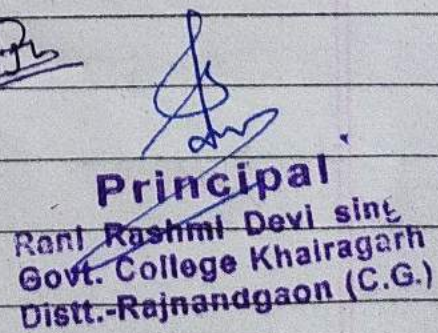 Principal
Rani Rashmi Devi sing
Govt. College Khairagarh
Distt.-Rajnandgaon (C.G.)